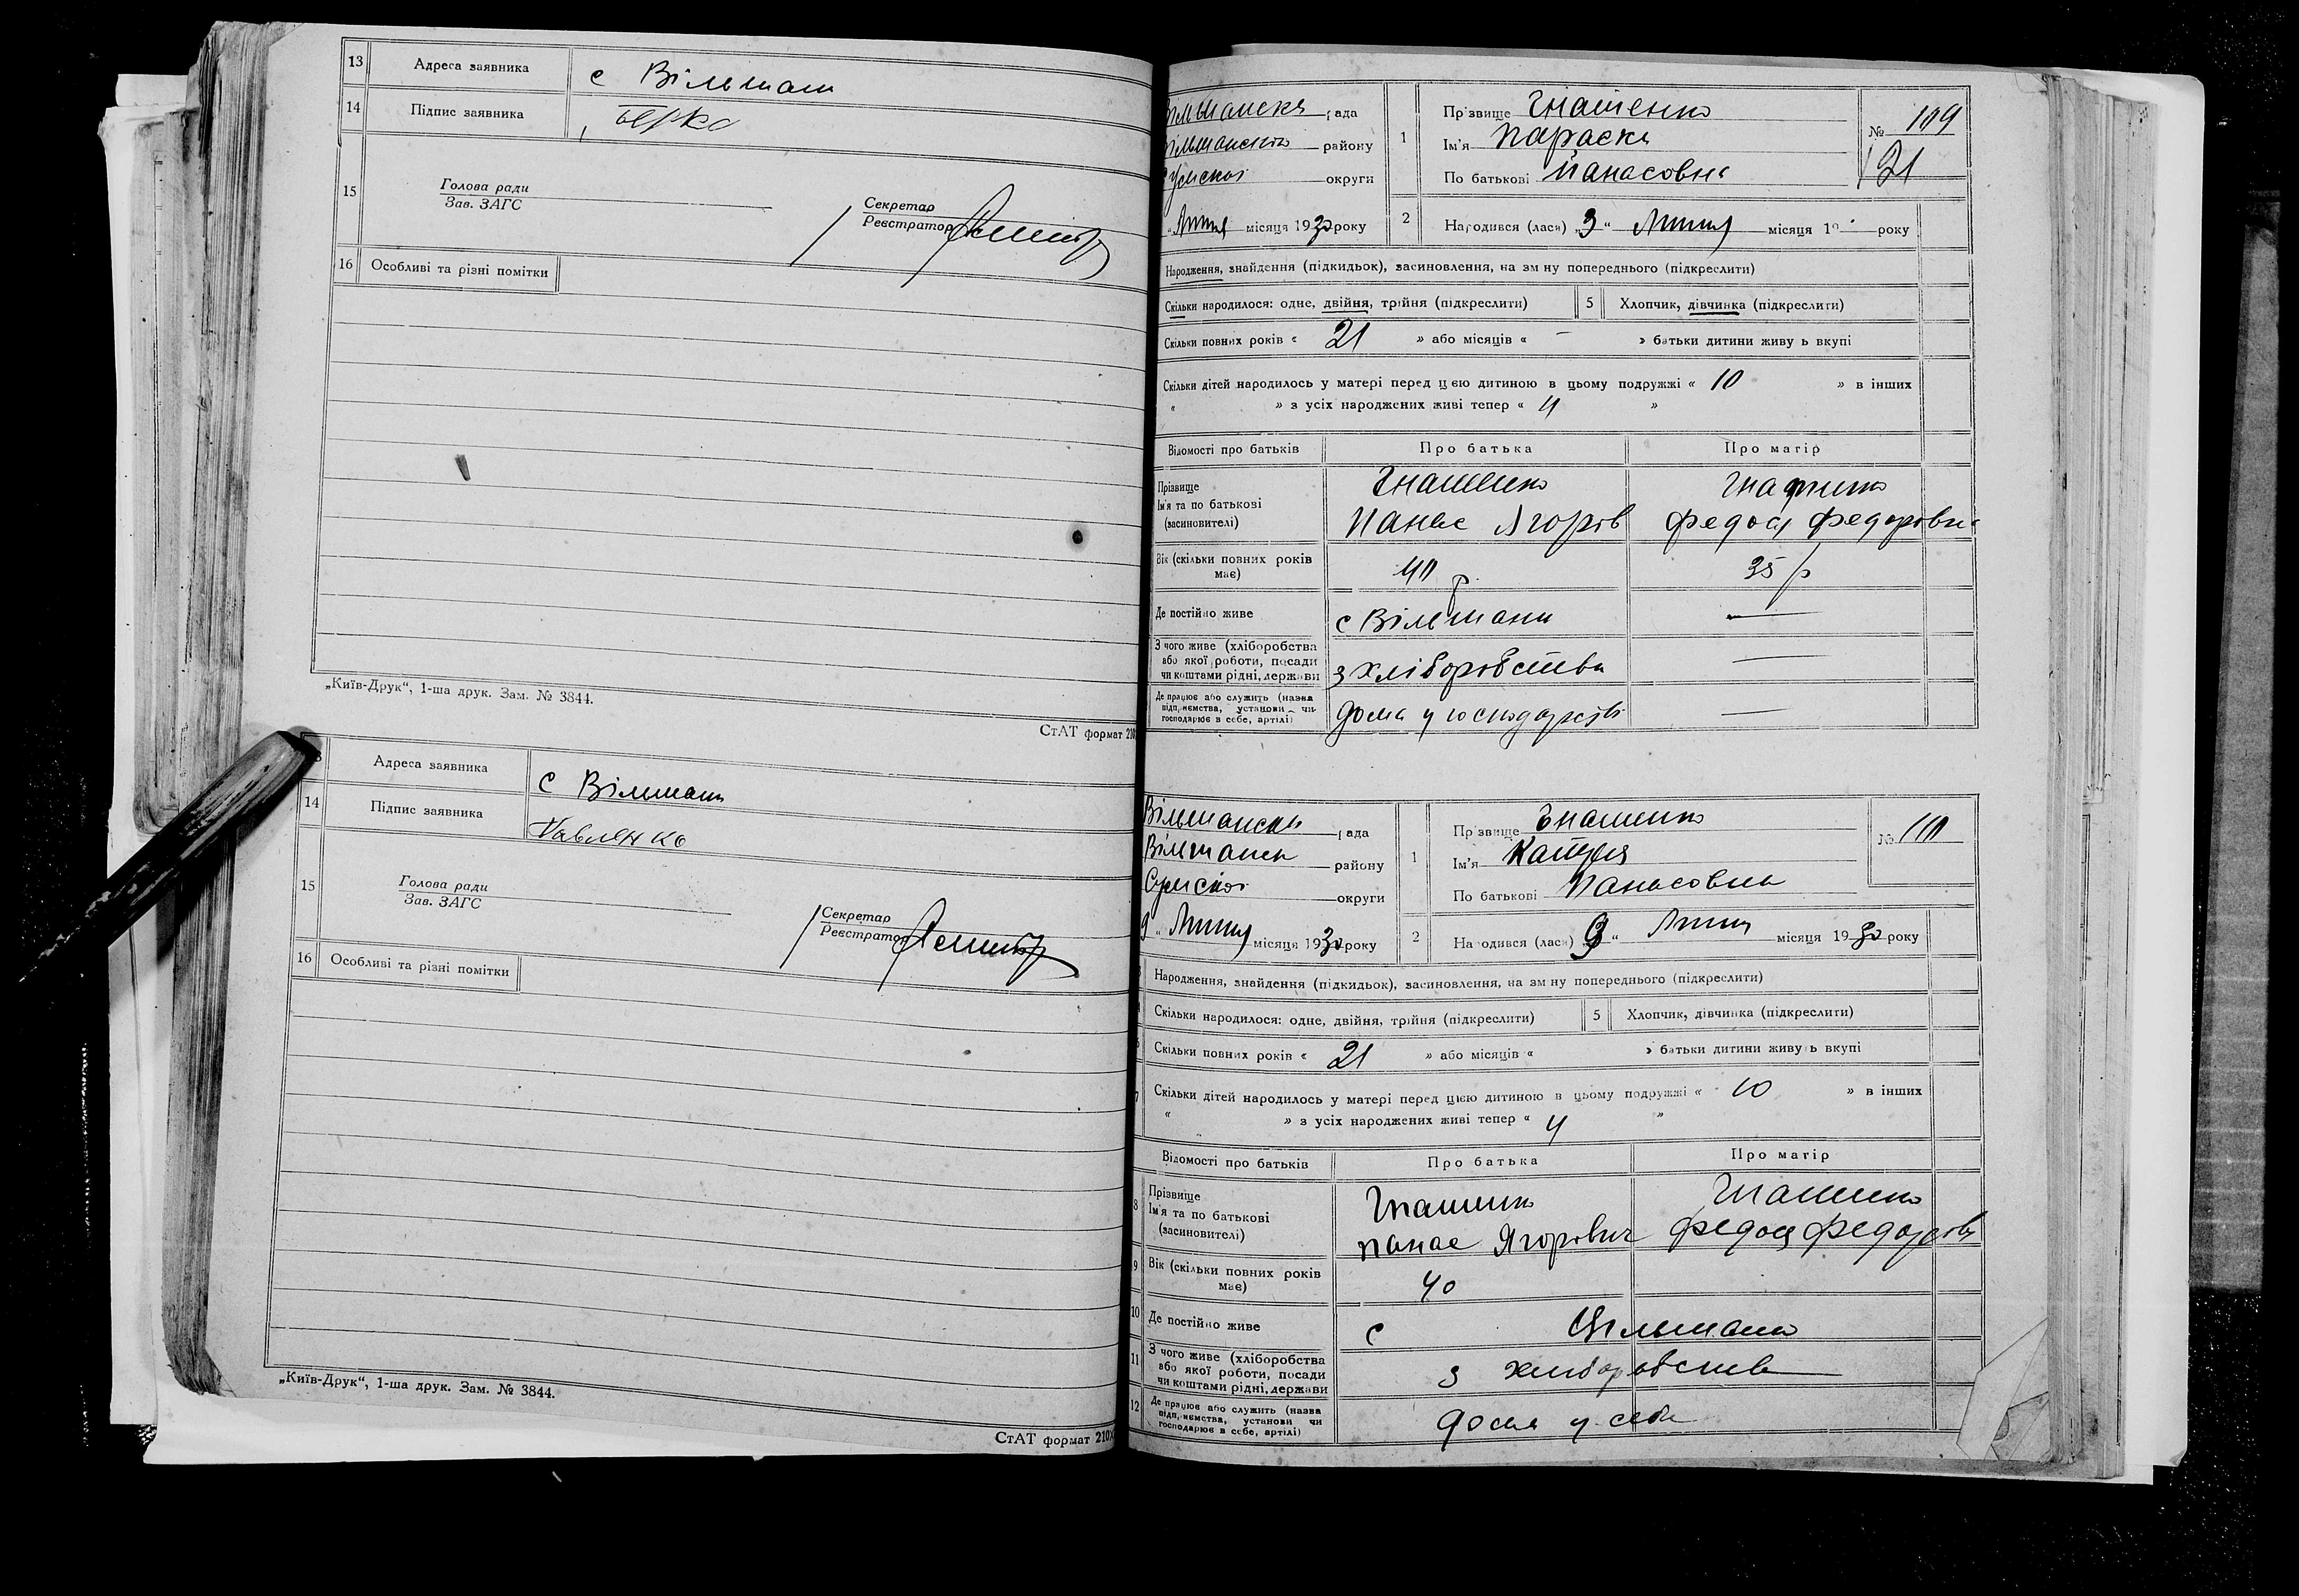 13 Адреса заявника с Вільшани
14 Підпис заявника
15 Голова ради
Зав. ЗАГС
Секретар
Реєстратор
16 Особливі та різні помітки
„Київ-Друк“, 1-ша друк. Зам. № 3844.
СтАТ формат 210
Адреса заявника с Вільшани
14 Підпис заявника Павленко
15 Голова ради
Зав. ЗАГС
Секретар
Реєстратор
16 Особливі та різні помітки
„Київ-Друк“, 1-ша друк. Зам. № 3844.
СтАТ формат 210
рада
району
округи
Липня місяця 1930 року
1 Прізвище Гнатенко
Ім'я Параска
По батькові Панасовна
№ 109
21
2 Народився (лась) „3“ Липня місяця 19 року
Народження, знайдення (підкидьок), засиновлення, на зміну попереднього (підкреслити)
Скільки народилося: одне, двійня, трійня (підкреслити) 5 Хлопчик, дівчинка (підкреслити)
Скільки повних років « 21 » або місяців « — » батьки дитини живуть вкупі
Скільки дітей народилось у матері перед цією дитиною в цьому подружжі « 10 » в інших
« » з усіх народжених живі тепер « 4 »
Відомості про батьків Про батька Про матір
Прізвище Гнатенко Гнатенко
Ім'я та по батькові
(засиновителі) Панас Ягоров Федося Федоровна
Вік (скільки повних років має) 40 р. 35 р
Де постійно живе с Вільшани —
З чого живе (хліборобства або якої роботи, посади чи коштами рідні, держави з хліборобства —
Де працює або служить (назва підприємства, установи чи господарює в себе, артілі) дома у господарстві —
Вільшанська рада
Вільшанськ району
Сумської округи
9 „ Липня місяця 1930 року
1 Прізвище Гнатенко
Ім'я Катря
По батькові Панасовна
№ 110
2 Народився (лась) „3“ Липня місяця 1930 року
Народження, знайдення (підкидьок), засиновлення, на зміну попереднього (підкреслити)
Скільки народилося: одне, двійня, трійня (підкреслити) 5 Хлопчик, дівчинка (підкреслити)
Скільки повних років « 21 » або місяців « » батьки дитини живуть вкупі
Скільки дітей народилось у матері перед цією дитиною в цьому подружжі « 10 » в інших
« » з усіх народжених живі тепер « 4 »
Відомості про батьків Про батька Про матір
8 Прізвище Гнатенко Гнатенко
Ім'я та по батькові
(засиновителі) Панас Ягорович Федося Федоров
9 Вік (скільки повних років має) 40
10 Де постійно живе с Вільшани
11 З чого живе (хліборобства або якої роботи, посади чи коштами рідні, держави з хліборобства
12 Де працює або служить (назва підприємства, установи чи господарює в себе, артілі) дома у себе